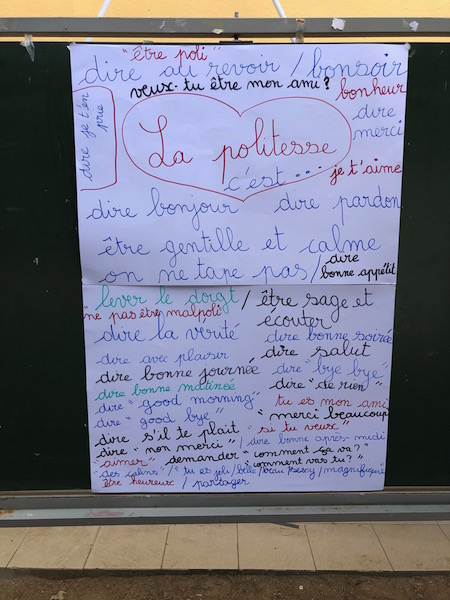 "être poli"
dire au revoir / bonsoir
veux-tu être mon ami ?
bonheur
dire je t'en prie
dire merci
La politesse
c'est ...
je t'aime
dire bonjour dire pardon
être gentille et calme
on ne tape pas / dire bonne appétit
lever le doigt / être sage et écouter
"ne pas être malpoli"
dire la vérité
dire bonne soirée
dire avec plaisir
dire salut
dire bonne journée
dire "bye bye"
dire bonne matinée
dire "de rien"
dire "good morning"
tu es mon ami
dire "good bye"
"merci beaucoup"
dire s'il te plait "si tu veux"
dire "non merci" / dire bonne apres-midi
"aimer" demander "comment ça va?"
"comment vas tu?"
"des câlins" / "tu es joli / belle / beau / / magnifique
être heureux / partager